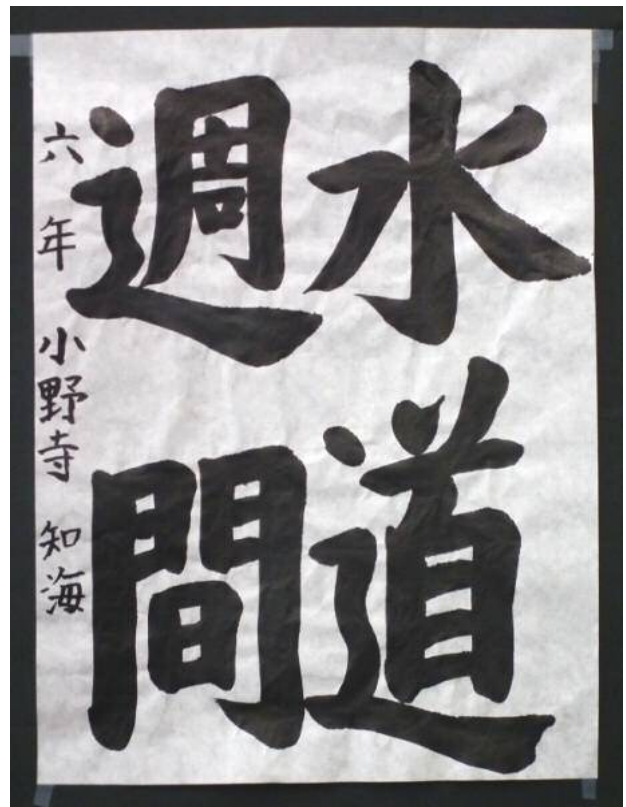 水道
週間
六年 小野寺 知海